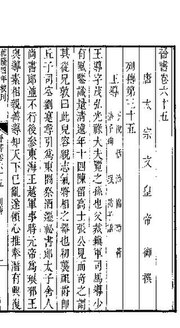 晉書卷六十五
唐太宗文皇帝御撰
列傳第三十五
王導
王導字茂弘光祿大夫覽之孫也父裁鎮軍司馬導少
有風鑒識量清遠年十四陳留高士張公見而奇之謂
其從兄敦曰此兒容貌志氣將相之器也初襲祖爵即
丘子司空劉寔尋引為東閤祭酒遷秘書郎太子舍人
尚書郎並不行後參東海王越軍事時元帝為琅邪王
與導素相親善導知天下已亂遂傾心推奉潛有興復
乾隆四年校刊